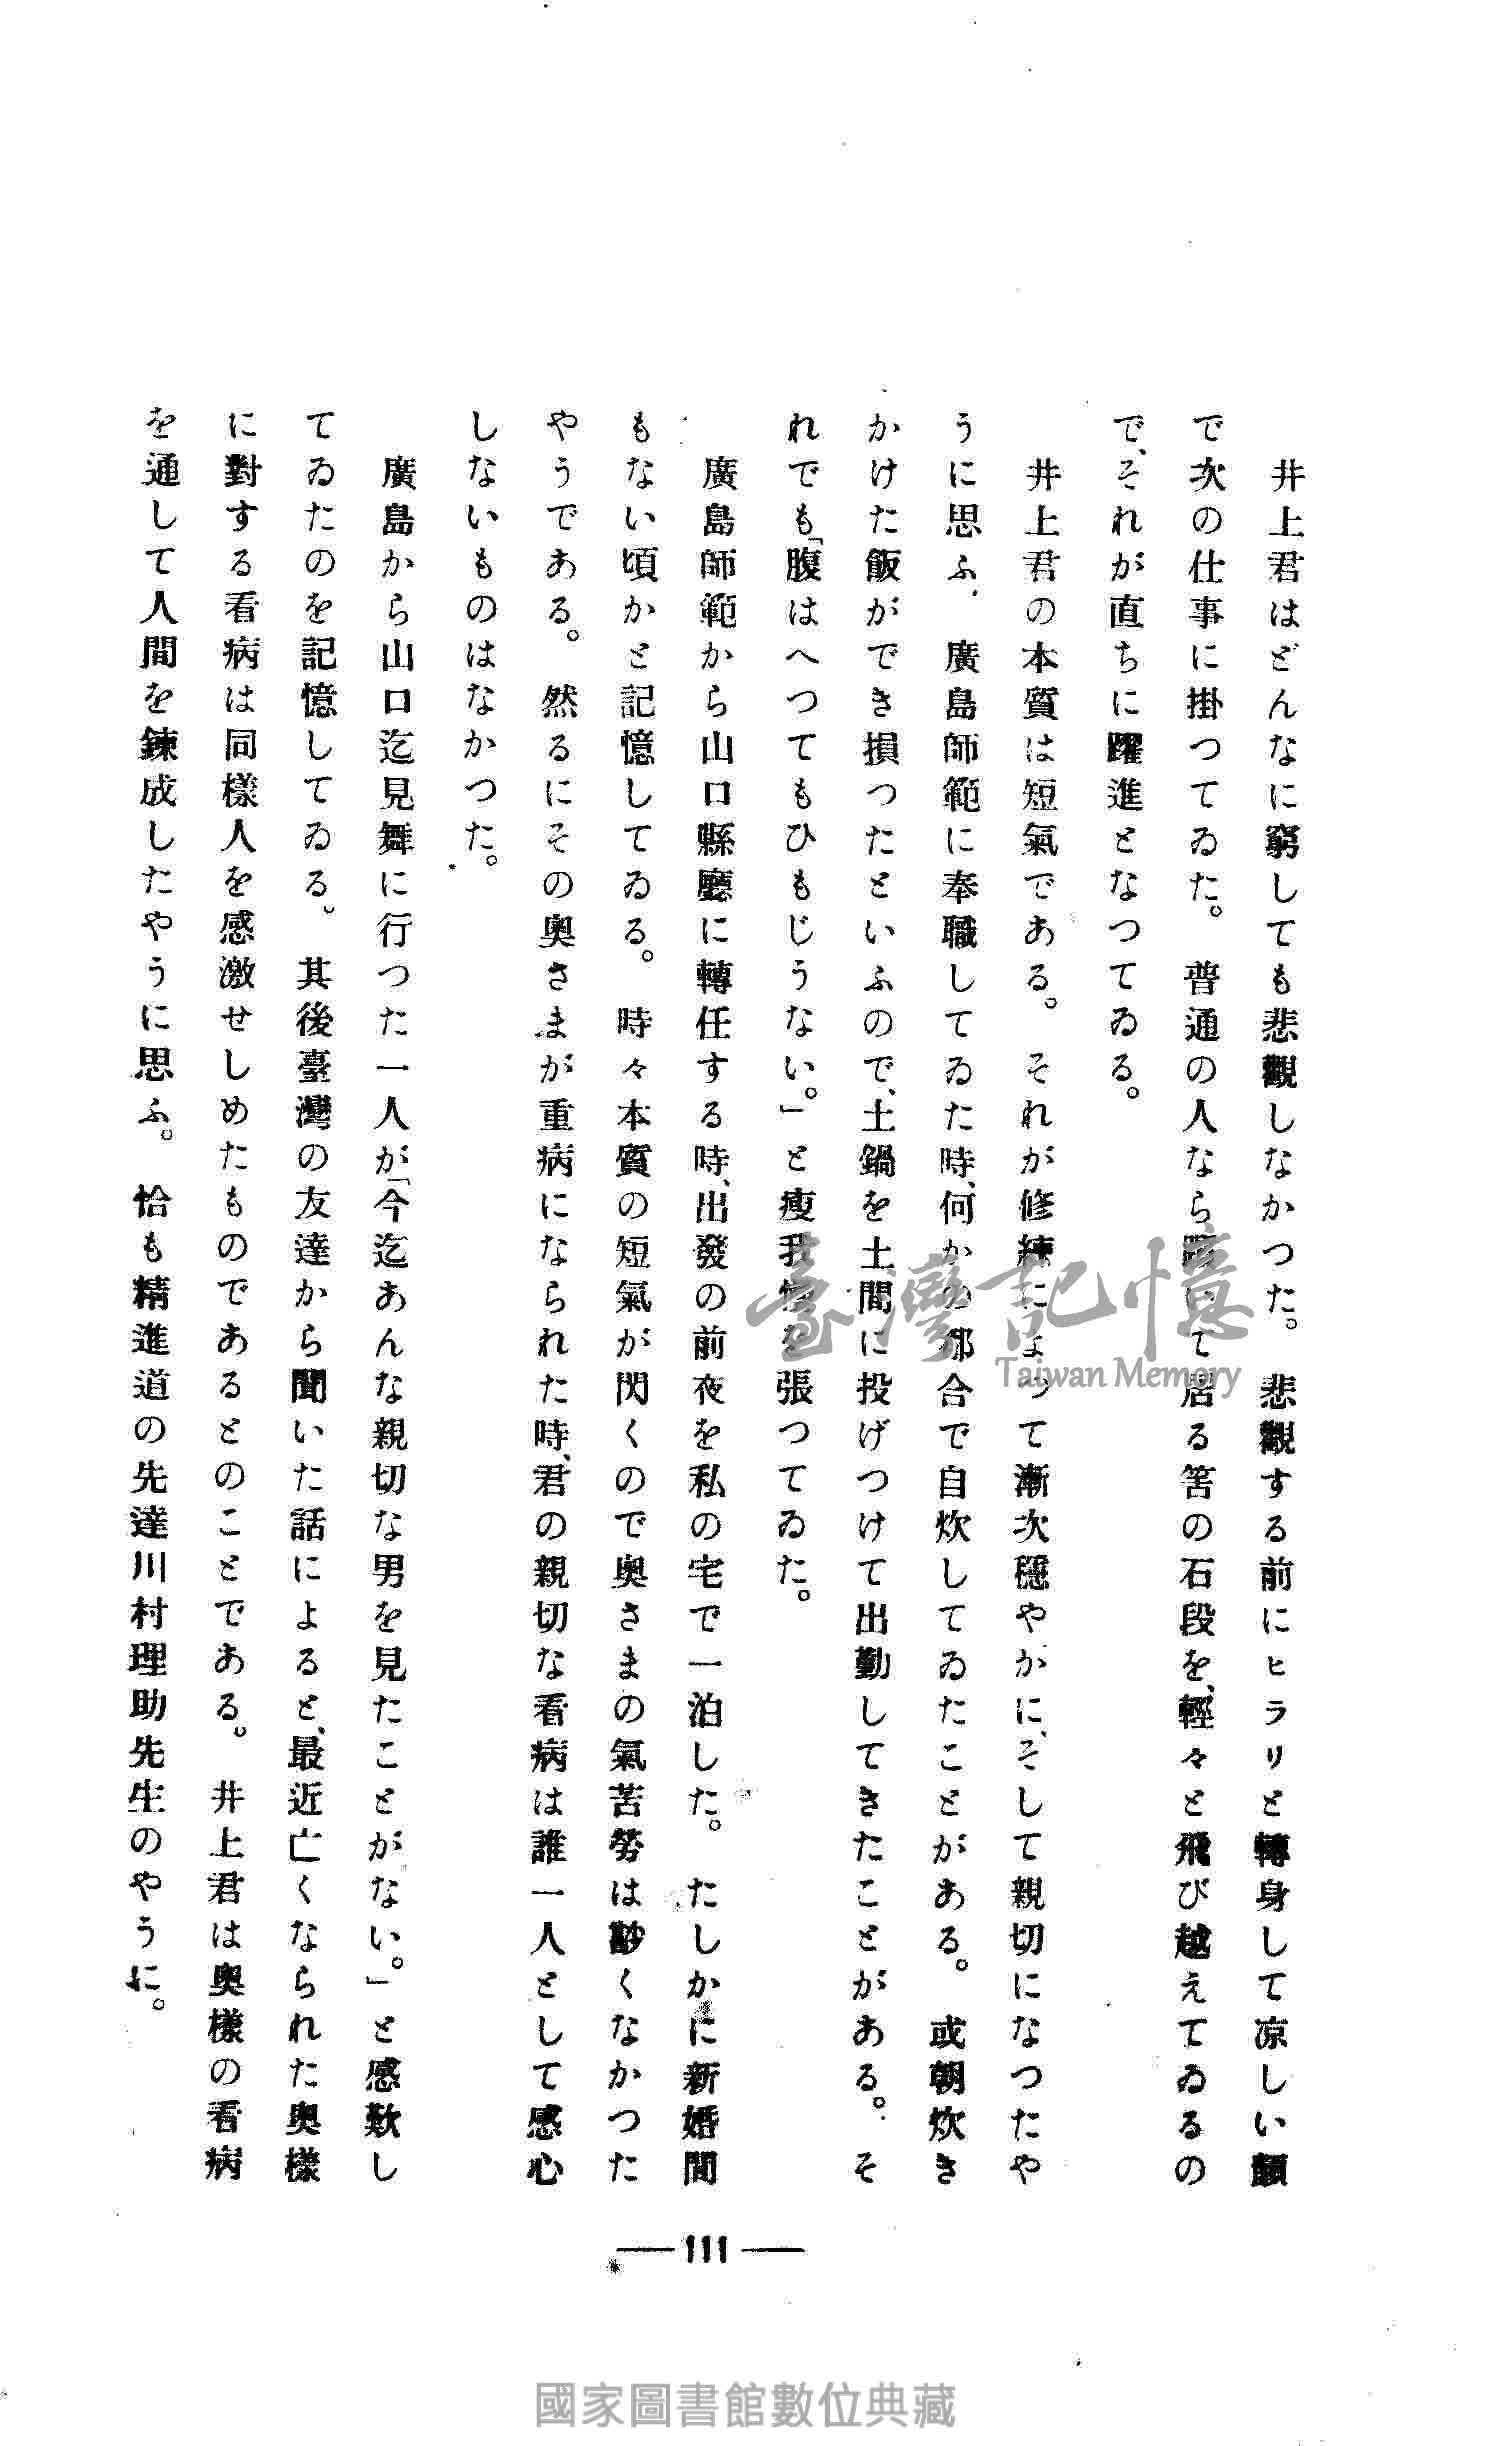 井上君はどんなに窮しても悲觀しなかつた。悲觀する前にヒラリと轉身して凉しい顏
で次の仕事に掛つてゐた。普通の人なら いて居る筈の石段を、輕々と飛び越えてゐるの
で、それが直ちに躍進となつてゐる。
井上君の本質は短氣である。それが修練によつて漸次穩やかに、そして親切になつたや
うに思ふ、廣島師範に奉職してゐた時、何かの都合で自炊してゐたことがある。或朝炊き
かけた飯ができ損つたといふので、土鍋を土間に投げつけて出勤してきたことがある。そ
れでも「腹はへつてもひもじうない。」と瘦我慢を張つてゐた。
廣島師範から山口縣廳に轉任する時、出發の前夜を私の宅で一泊した。たしかに新婚間
もない頃かと記憶してゐる。時々本質の短氣が閃くので奥さまの氣苦勞は尠くなかつた
やうである。然るにその奥さまが重病になられた時、君の親切な看病は誰一人として感心
しないものはなかつた。
廣島から山口迄見舞に行つた一人が「今迄あんな親切な男を見たことがない。」と感歎し
てゐたのを記憶してゐる。其後臺灣の友達から聞いた話によると、最近亡くなられた奥樣
に對する看病は同樣人を感激せしめたものであるとのことである。井上君は奥樣の看病
を通して人間を鍊成したやうに思ふ。恰も精進道の先達川村理助先生のやうに。
— 111 —
臺灣記憶
Taiwan Memory
國家圖書館數位典藏